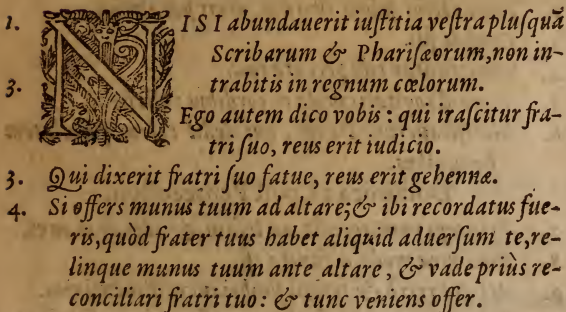 1. NISI abundauerit iuſtitia veſtra pluſquã
Scribarum & Phariſæorum, non in-
3. trabitis in regnum cœlorum.
Ego autem dico vobis : qui iraſcitur fra-
tri ſuo, reus erit iudicio.
3. Qui dixerit fratri ſuo fatue, reus erit gehennæ.
4. Si offers munus tuum ad altare; & ibi recordatus fue-
ris, quòd frater tuus habet aliquid aduerſum te, re-
linque munus tuum ante altare, & vade priùs re-
conciliari fratri tuo: & tunc veniens offer.